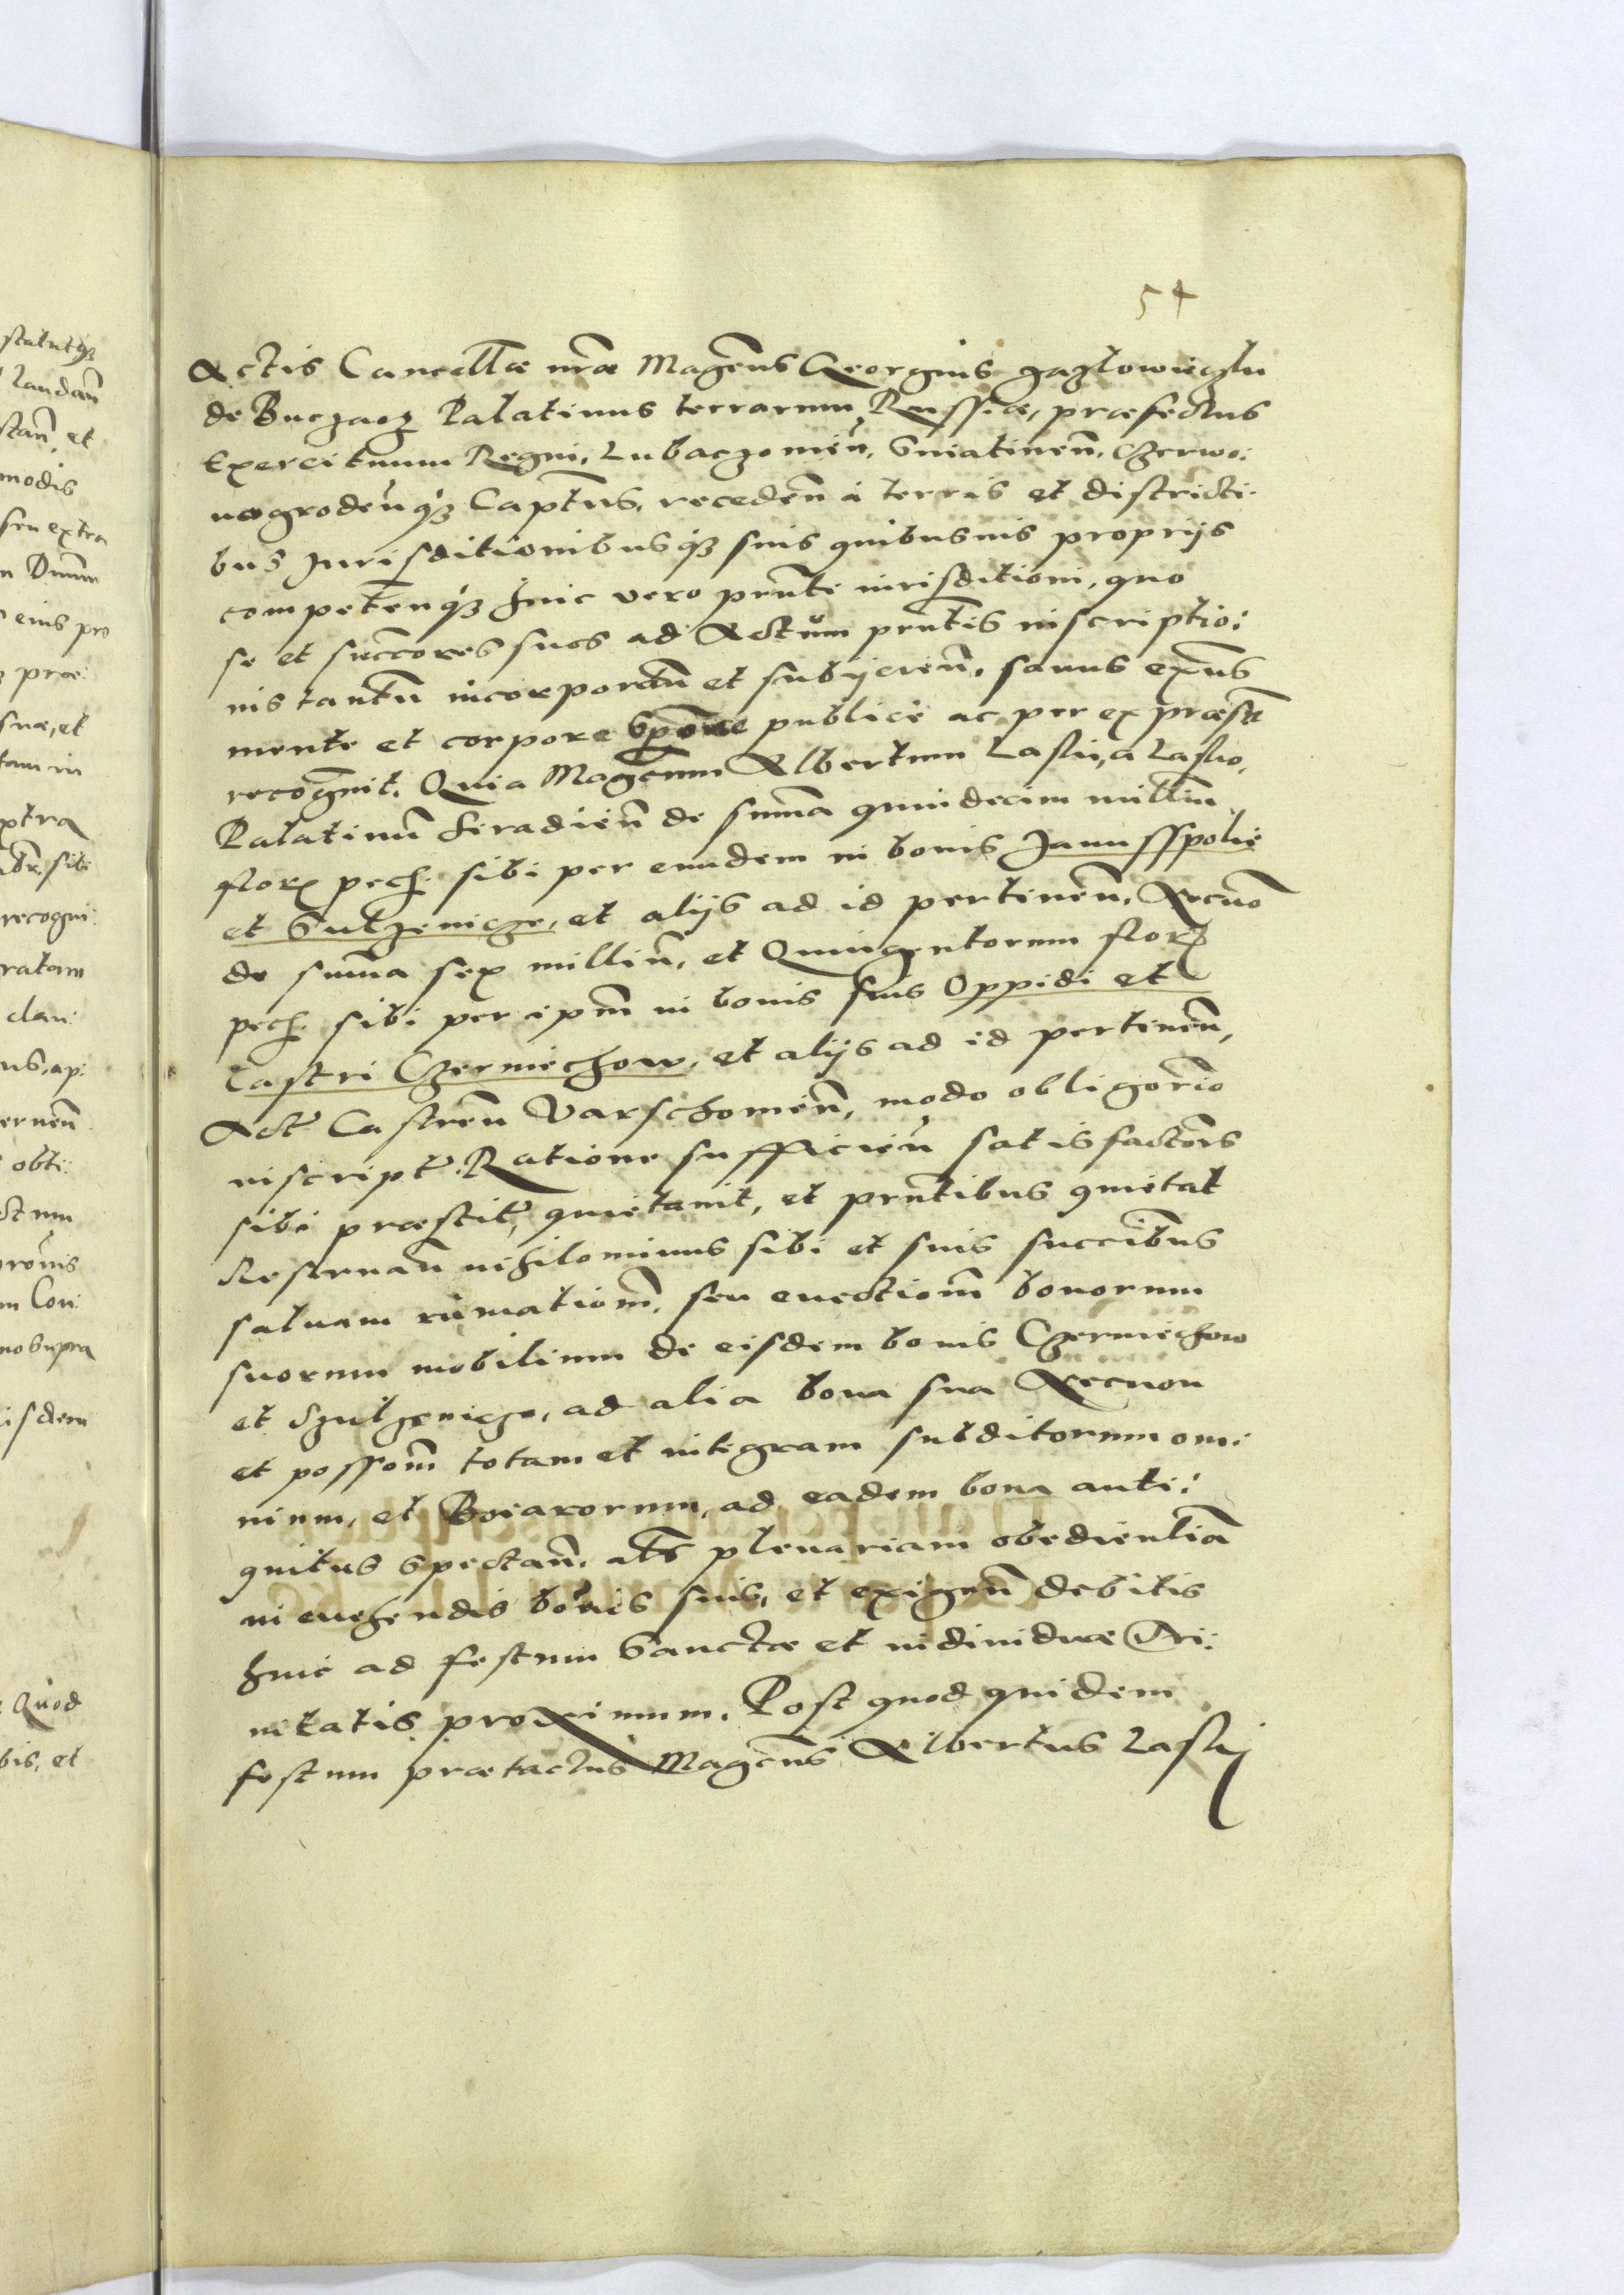 54
Actis Cancellæ nr̃æ Mag̃cus Georgius Jazlowieczki
de Buczacz Palatinus terrarum Russiæ, præfectus
Exercituum Regni, Lubaczowieñ, Sniatineñ, Czerwo:
nogrodeñq3 Captũs, recedeñ á terris et districti:
bus Jurisditionibusq3 suis quibusuis proprijs
competeñq3 huic vero pñti iurisditioni, quo
se et succ̃ores suos ad Actum pñtis inscriptio:
nis tantũ incorporañ et subijcieñ, sanus exñs
mente et corpore spõnte publicè ac per expræssũ
recognit. Quia Mag̃cum Albertum Laski, a Lasko,
Palatinũ Siradieñ de summa quindecim milliũ
flor pecũ: sibi per eundem in bonis Janusspolie
et Sulzenicze, et alijs ad id pertineñ, Necnõ
de sum̃a sex milliũ, et Quingentorum flor
pecũ: sibi per ipm̃ in bonis suis Oppidi et
Castri Czerniechow, et alijs ad id pertineñ,
Act Castreñ Varschouieñ, modo obligorio
inscript. Ratione sufficieñ satisfactionis
sibi præstit, quietauit, et pñtibus quietat
Reseruañ nihilominus sibi et suis succ̃ibus
saluam rumationẽ, seu euectionẽ bonorum
suorum mobilium de eisdem bonis Czerniechow
et Szulzenicze, ad alia bona sua Necnon
et possõm totam et integram subditorum om:
nium, et Boiarorum, ad eadem bona anti:
quitus spectañ, at plenariam obedientiã
in euehendis bonis suis, et exigeñ debitis
huic ad festum Sanctæ et indiuiduæ Tri:
nitatis proximum. Post quod quidem
festum prætactus Mag̃cus Albertus Laskj